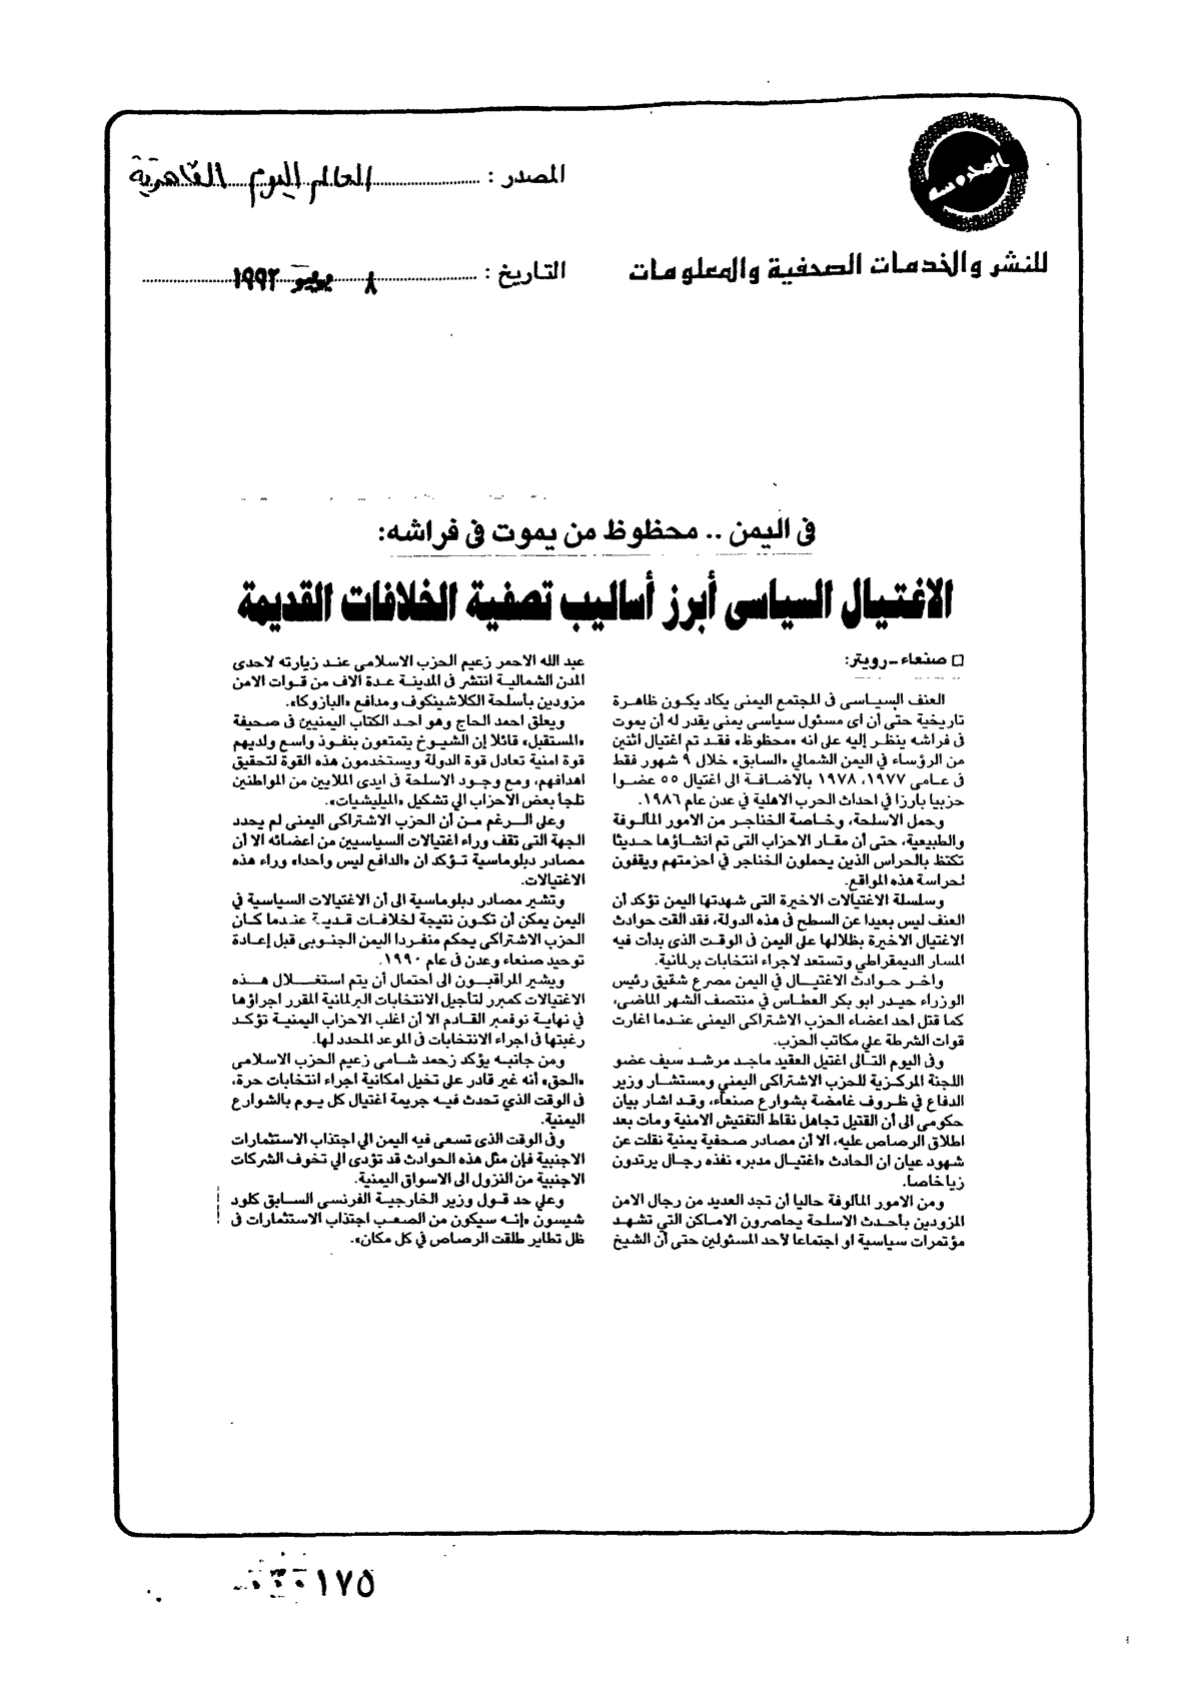 المصدر : العالم اليوم القاهرية
للنشر والخدمات الصحفية والمعلومات
التاريخ : ٨ يونيو ١٩٩٢
فى اليمن .. محظوظ من يموت فى فراشه:
الاغتيال السياسى أبرز أساليب تصفية الخلافات القديمة
□ صنعاء - رويتر:
العنف السياسى فى المجتمع اليمنى يكاد يكون ظاهرة
تاريخية حتى أن اى مسئول سياسى يمنى يقدر له أن يموت
فى فراشه ينظر إليه على انه «محظوظ» فقد تم اغتيال اثنين
من الرؤساء في اليمن الشمالي «السابق» خلال ٩ شهور فقط
فى عامى ١٩٧٧، ١٩٧٨ بالاضافة الى اغتيال ٥٥ عضوا
حزبيا بارزا في احداث الحرب الاهلية في عدن عام ١٩٨٦.
وحمل الاسلحة، وخاصة الخناجر من الامور المألوفة
والطبيعية، حتى أن مقار الاحزاب التى تم انشاؤها حديثا
تكتظ بالحراس الذين يحملون الخناجر في احزمتهم ويقفون
لحراسة هذه المواقع.
وسلسلة الاغتيالات الاخيرة التى شهدتها اليمن تؤكد أن
العنف ليس بعيدا عن السطح فى هذه الدولة، فقد القت حوادث
الاغتيال الاخيرة بظلالها على اليمن فى الوقت الذى بدأت فيه
المسار الديمقراطي وتستعد لاجراء انتخابات برلمانية.
واخر حوادث الاغتيال في اليمن مصرع شقيق رئيس
الوزراء حيدر ابو بكر العطاس في منتصف الشهر الماضى،
كما قتل احد اعضاء الحزب الاشتراكى اليمنى عندما اغارت
قوات الشرطة علي مكاتب الحزب.
وفى اليوم التالى اغتيل العقيد ماجد مرشد سيف عضو
اللجنة المركزية للحزب الاشتراكى اليمني ومستشار وزير
الدفاع في ظروف غامضة بشوارع صنعاء، وقد اشار بيان
حكومى الى أن القتيل تجاهل نقاط التفتيش الامنية ومات بعد
اطلاق الرصاص عليه، الا أن مصادر صحفية يمنية نقلت عن
شهود عيان ان الحادث «اغتيال مدبر» نفذه رجال يرتدون
زيا خاصا.
ومن الامور المألوفة حاليا أن تجد العديد من رجال الامن
المزودين بأحدث الاسلحة يحاصرون الاماكن التي تشهد
مؤتمرات سياسية او اجتماعا لأحد المسئولين حتى أن الشيخ
عبد الله الاحمر زعيم الحزب الاسلامى عند زيارته لاحدى
المدن الشمالية انتشر فى المدينة عدة الاف من قوات الامن
مزودين بأسلحة الكلاشينكوف ومدافع «البازوكا».
ويعلق احمد الحاج وهو احد الكتاب اليمنيين فى صحيفة
«المستقبل» قائلا إن الشيوخ يتمتعون بنفوذ واسع ولديهم
قوة امنية تعادل قوة الدولة ويستخدمون هذه القوة لتحقيق
اهدافهم، ومع وجود الاسلحة فى ايدى الملايين من المواطنين
تلجأ بعض الاحزاب الي تشكيل «الميليشيات».
وعلى الرغم من أن الحزب الاشتراكى اليمنى لم يحدد
الجهة التى تقف وراء اغتيالات السياسيين من اعضائه الا أن
مصادر دبلوماسية تؤكد ان «الدافع ليس واحدا» وراء هذه
الاغتيالات.
وتشير مصادر دبلوماسية الى أن الاغتيالات السياسية في
اليمن يمكن أن تكون نتيجة لخلافات قديمة عندما كان
الحزب الاشتراكى يحكم منفردا اليمن الجنوبى قبل إعادة
توحيد صنعاء وعدن فى عام ١٩٩٠.
ويشير المراقبون الى احتمال أن يتم استغلال هذه
الاغتيالات كمبرر لتأجيل الانتخابات البرلمانية المقرر اجراؤها
في نهاية نوفمبر القادم الا أن اغلب الاحزاب اليمنية تؤكد
رغبتها فى اجراء الانتخابات فى الموعد المحدد لها.
ومن جانبه يؤكد زحمد شامى زعيم الحزب الاسلامى
«الحق» أنه غير قادر على تخيل امكانية اجراء انتخابات حرة،
فى الوقت الذي تحدث فيه جريمة اغتيال كل يوم بالشوارع
اليمنية.
وفى الوقت الذى تسعى فيه اليمن الي اجتذاب الاستثمارات
الاجنبية فإن مثل هذه الحوادث قد تؤدى الي تخوف الشركات
الاجنبية من النزول الى الاسواق اليمنية.
وعلي حد قول وزير الخارجية الفرنسى السابق كلود
شيسون «إنه سيكون من الصعب اجتذاب الاستثمارات فى
ظل تطاير طلقت الرصاص في كل مكان».